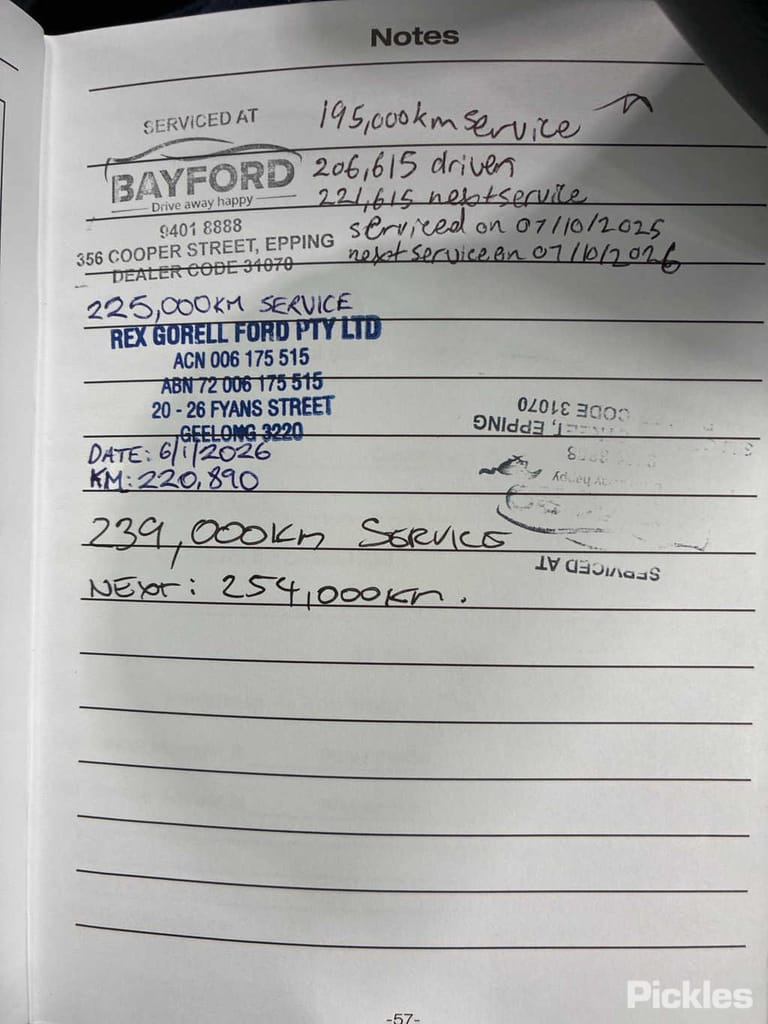 Notes
SERVICED AT
BAYFORD
Drive away happy
9401 8888
356 COOPER STREET, EPPING
DEALER CODE 31070
195,000km service
206,615 driven
221,615 next service
serviced on 07/10/2025
next service on 07/10/2026
225,000KM SERVICE
REX GORELL FORD PTY LTD
ACN 006 175 515
ABN 72 006 175 515
20 - 26 FYANS STREET
GEELONG 3220
DATE: 6/1/2026
KM: 220,890
SERVICED AT
happy
EPPING
CODE 31070
239,000Km SERVICE
NEXT: 254,000Km.
-57-
Pickles